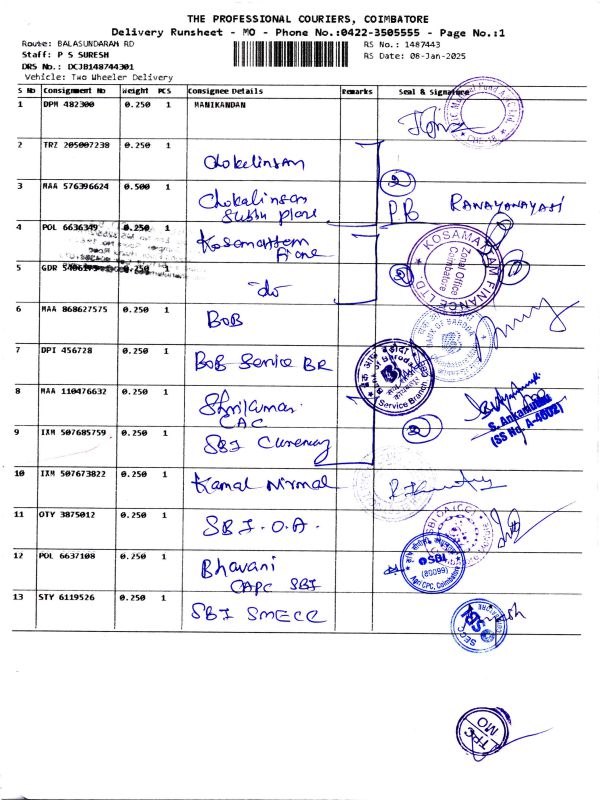 THE PROFESSIONAL COURIERS, COIMBATORE
Delivery Runsheet - MO - Phone No.:0422-3505555 - Page No.:1
Route: BALASUNDARAM RD
RS No.: 1487443
Staff: P S SURESH
RS Date: 08-Jan-2025
DRS No.: DCJB148744301
Vehicle: Two Wheeler Delivery
S No Consignment No Weight PCS Consignee Details Remarks Seal & Signature
1 DPM 482300 0.250 1 MANIKANDAN
2 TRZ 205007238 0.250 1 Chokalingam
3 MAA 576396624 0.500 1 Chokalingam
2
PPB RANAYANAYASI
4 POL 6636349 0.250 1 Kosamattam
Finance
KOSAMATTAM FINANCE LTD.
Zonal Office
Coimbatore
5 GDR 0.250 1 do
2
6 MAA 868627575 0.250 1 BOB
BANK OF BARODA
7 DPI 456728 0.250 1 BOB Service BR
Bank of Baroda
Service Branch
8 MAA 110476632 0.250 1 Shrikumar
CAC
S. Ankamuthu
(SS No. A-4602)
9 IXM 507685759 0.250 1 SBI Currency
2
10 IXM 507673822 0.250 1 Kamal Nirmal
11 OTY 3875012 0.250 1 SBI. O.A.
12 POL 6637108 0.250 1 Bhavani
CAPC SBI
SBI
Agri CPC, Coimbatore
13 STY 6119526 0.250 1 SBI SMECC
SBI
TPC
MO